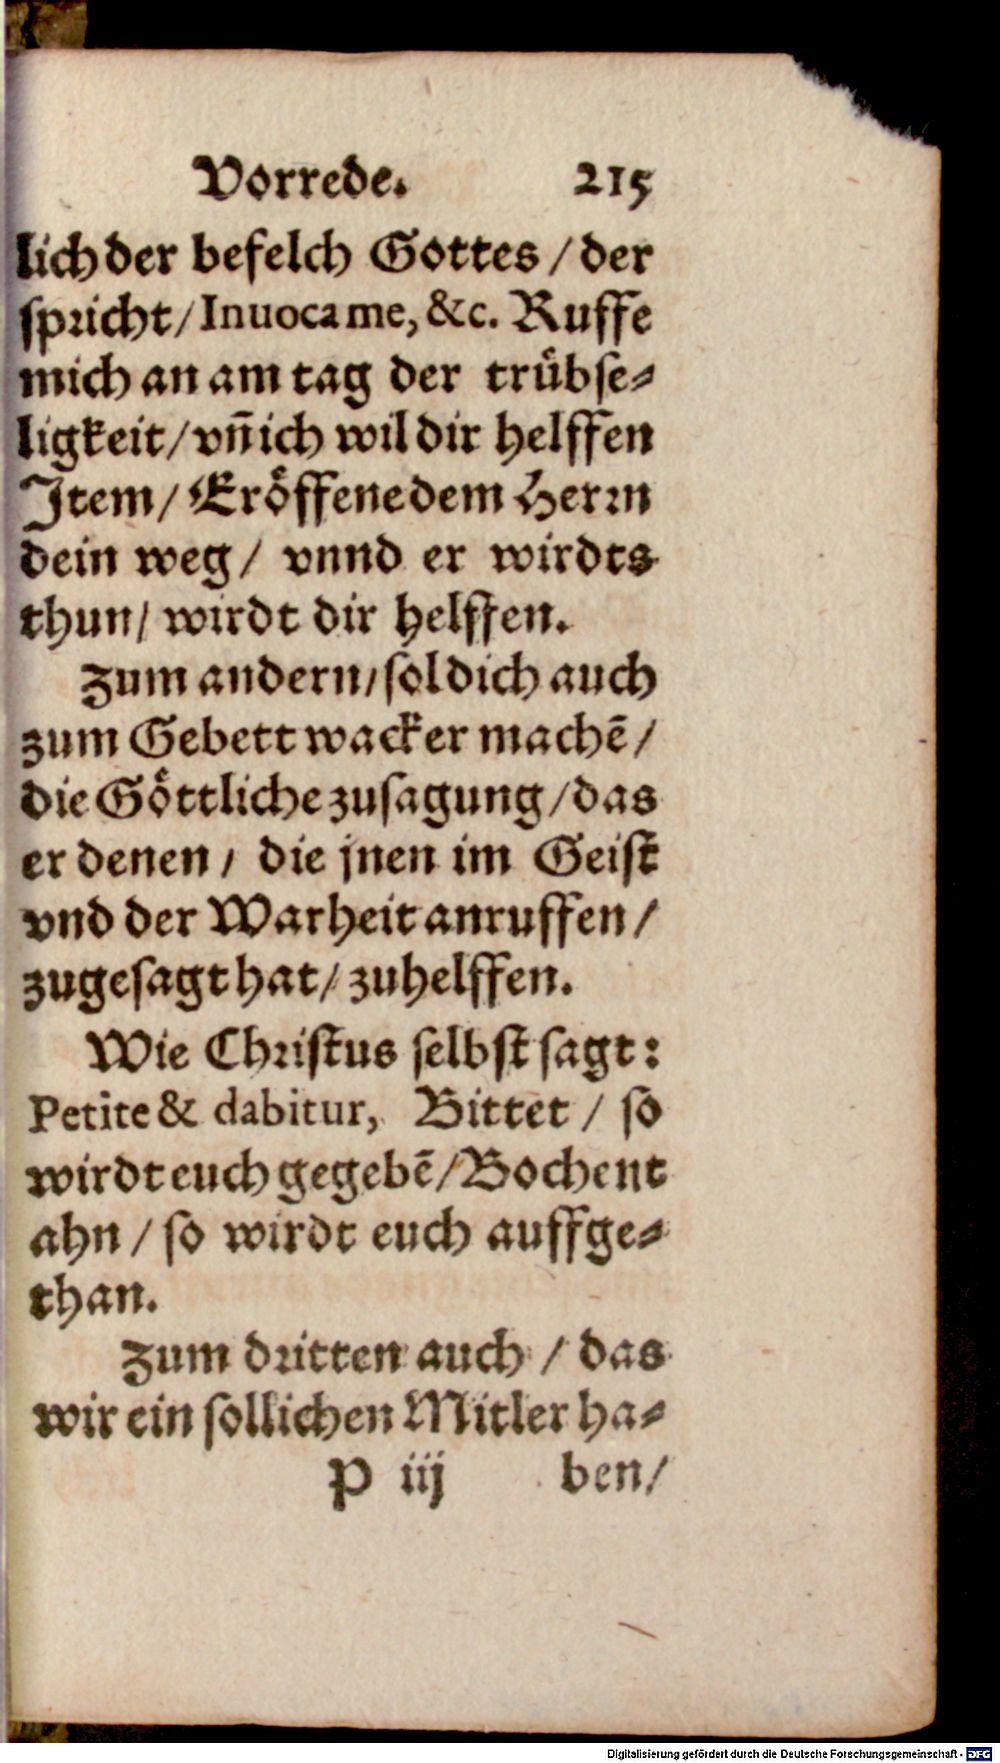 Vorrede. 215
lich der befelch Gottes / der
spricht / Inuoca me, &c. Ruffe
mich an am tag der trübse-
ligkeit / vñ ich wil dir helffen
Item / Eröffene dem Herrn
dein weg / vnnd er wirdts
thun / wirdt dir helffen.
Zum andern / sol dich auch
zum Gebett wacker machẽ /
die Göttliche zusagung / das
er denen / die jnen im Geist
vnd der Warheit anruffen /
zugesagt hat / zuhelffen.
Wie Christus selbst sagt:
Petite & dabitur, Bittet / so
wirdt euch gegebẽ / Bochent
ahn / so wirdt euch auffge-
than.
Zum dritten auch / das
wir ein sollichen Mitler ha-
P iij ben /
Digitalisierung gefördert durch die Deutsche Forschungsgemeinschaft - DFG